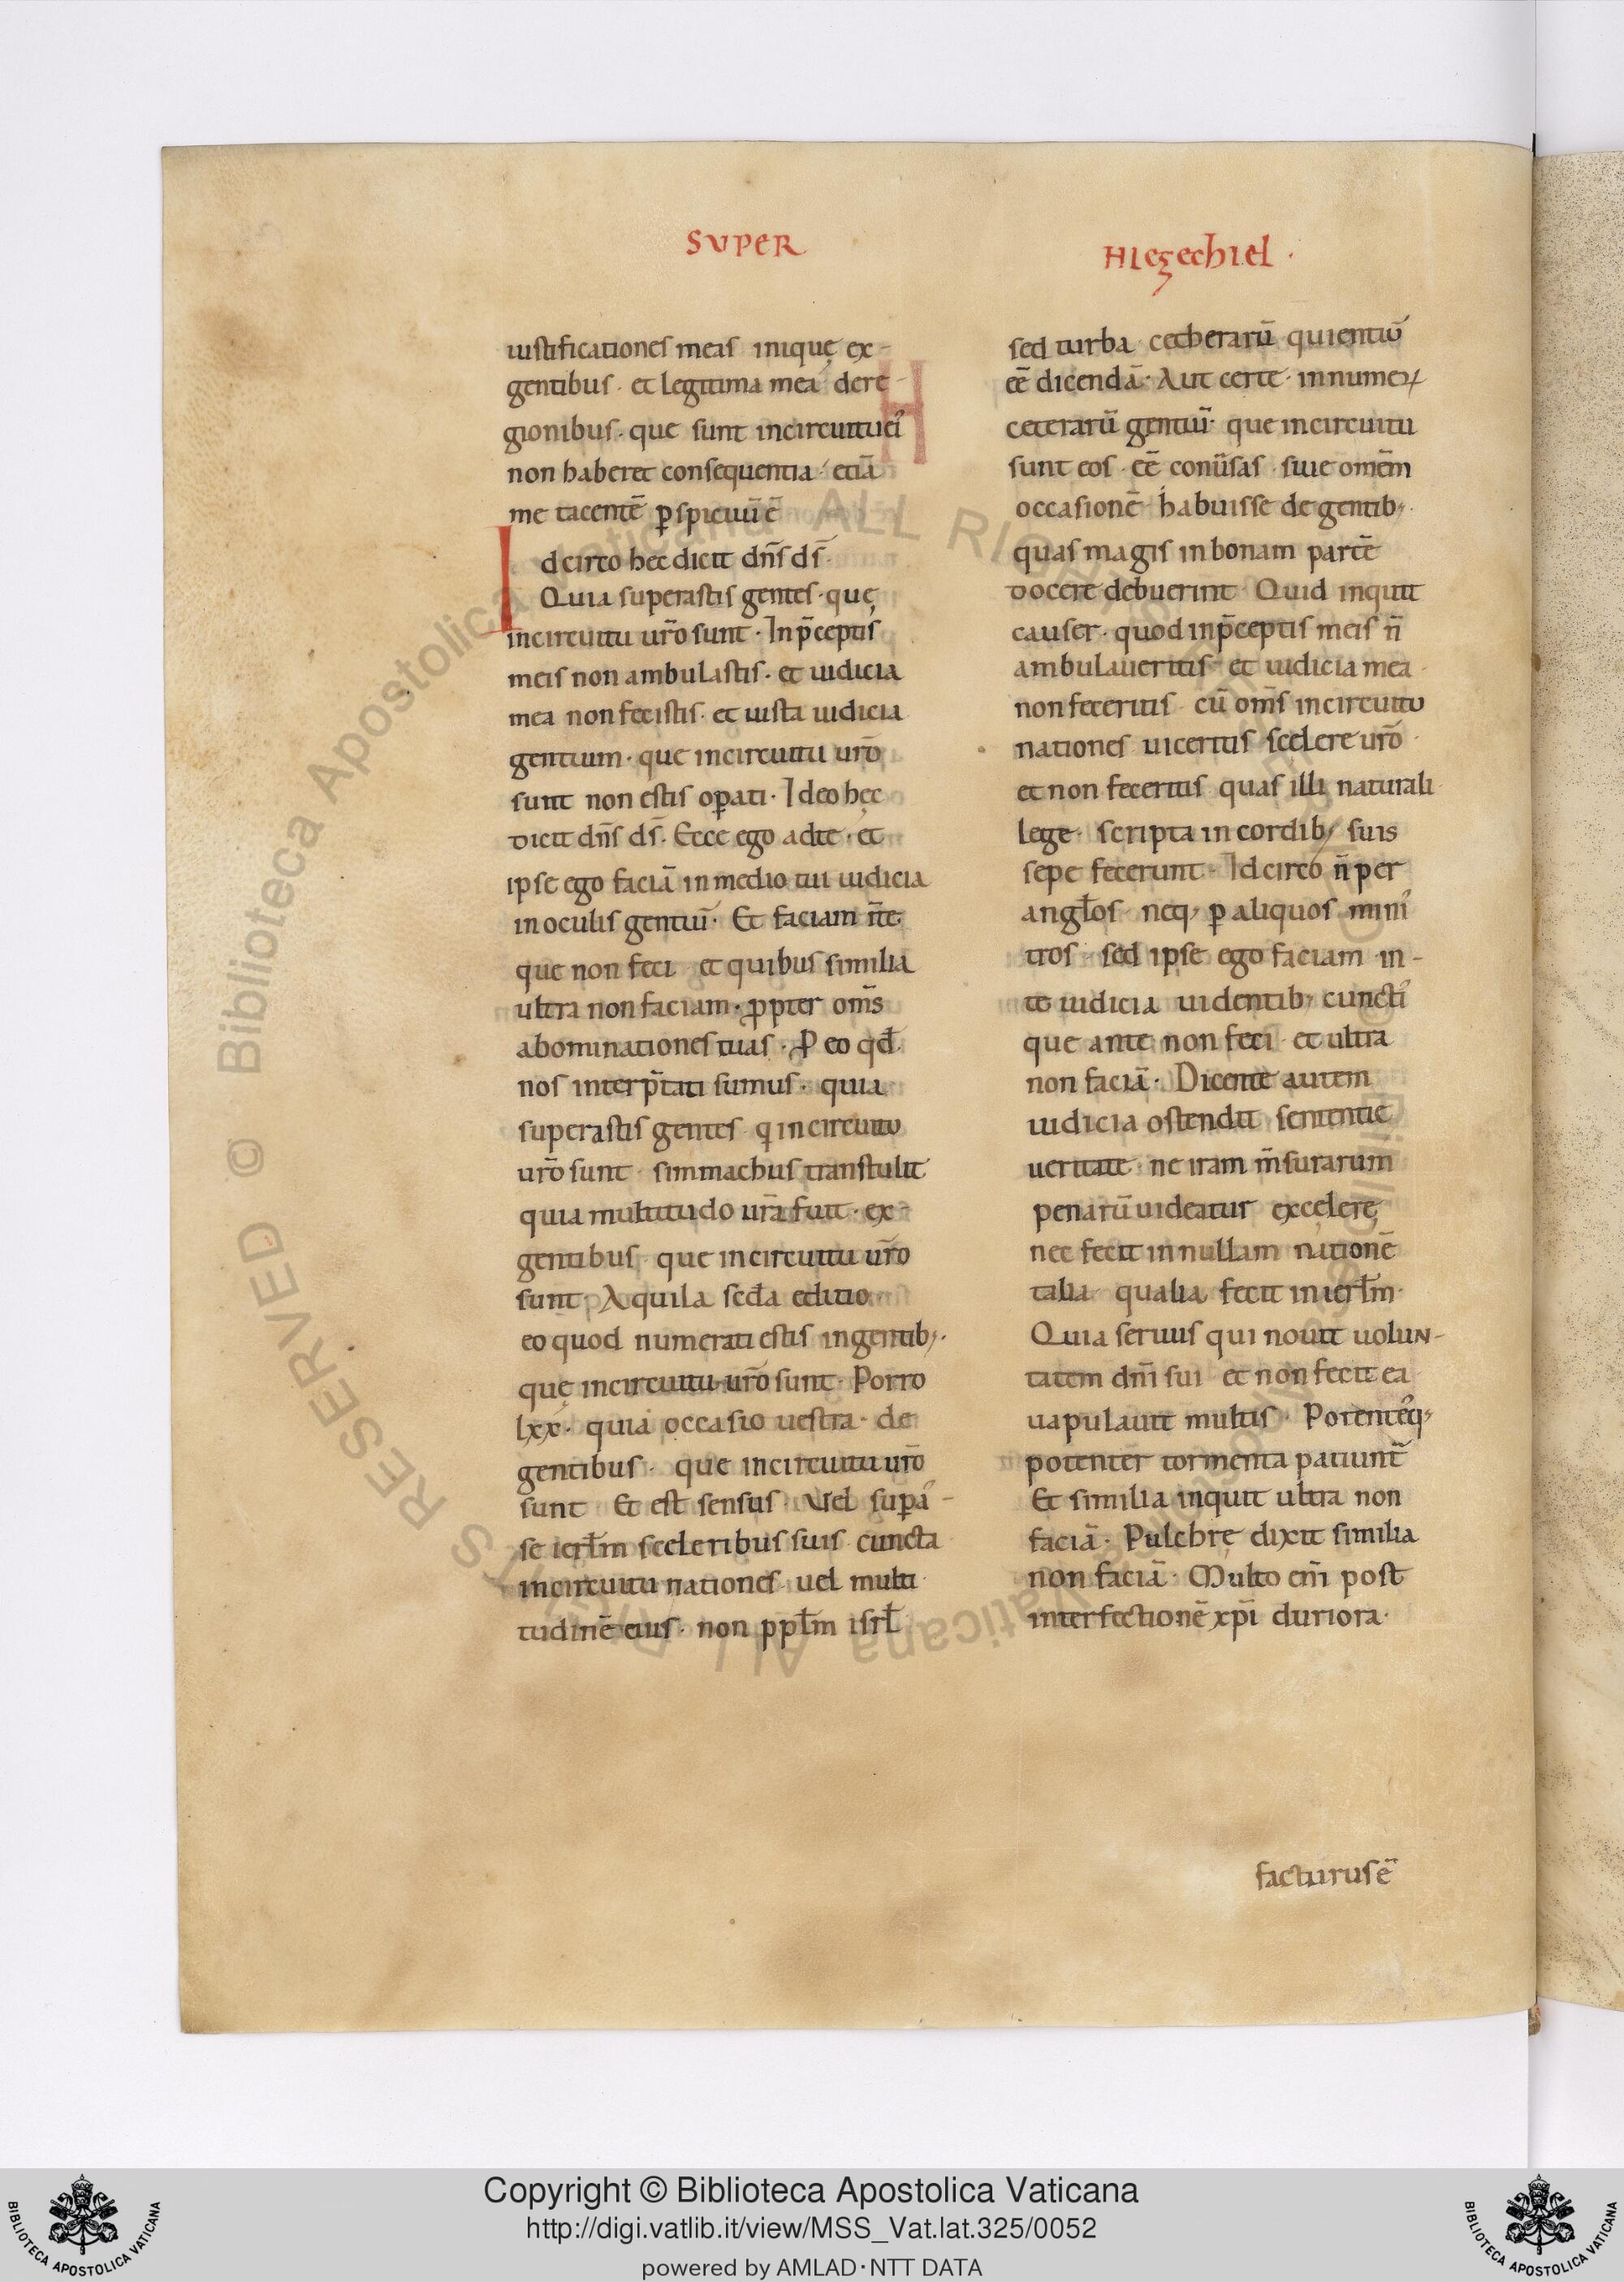 SUPER
HIEZECHIEL ·
iustificationes meas inique ex-
gentibus · et legitima mea dere-
gionibus · que sunt incircuitu ei᾽
non haberet consequentia · etiā
me tacentē p̱spicuū ē
Idcirco hec dicit dn̄s ds̄ ·
Quia superastis gentes · quę
incircuitu ur̄o sunt · In p̄ceptis
meis non ambulastis · et iudicia
mea non fecistis · et iusta iudicia
gentium · que incircuitu ur̄o
sunt non estis op̱ati · Ideo hęc
dicit dn̄s ds̄ · Ecce ego adte · et
ipse ego faciā inmedio tui iudicia
inoculis gentiū · Et faciam n̄te
que non feci et quibus similia
ultra non faciam · ꝓpter om̄s
abominationes tuas · P̱ eo qđ
nos interp̄tati sumus · quia
superastis gentes q incircuitu
ur̄o sunt · simmachus transtulit
quia multitudo ur̄a fuit · ex-
gentibus · que incircuitu ur̄o
sunt · Aquila scđa editio
eo quod numerati estis ingentib; ·
quę incircuitu ur̄o sunt · Porro
lxx · quia occasio uestra · de
gentibus · que incircuitu ur̄o
sunt Et est sensus · Vel sup̱a᾽-
se ierl̄m sceleribus suis cuncta
incircuitu nationes · uel multi
tudinē eius · non ppl̄m isrl̄
sed turba cetherarū quientiū
eē dicendā · Aut certe · innumeꝝ
ceterarū gentiū · que incircuitu
sunt eos · eē conūsas · siue omēm
occasionē habuisse de gentib; ·
quas magis in bonam partē
docere debuerint · Quid inquit
causer · quod inp̄ceptis meis n̄
ambulaueritis · et iudicia mea ·
non feceritis cū om̄s incircuitu
nationes uiceritis scelere ur̄o ·
et non feceritis quas illi naturali
lege · scripta in cordib; suis
sepe fecerunt · Idcirco n̄ per
angl̄os · neq; p̱ aliquos mini᾽
tros · sed ipse ego faciam in-
te iudicia uidentib; cuncti᾽
que ante non feci · et ultra
non faciā · Dicente autem
iudicia ostendit sententie
ueritate · ne iram m̄surarum
penarū uideatur excęlere
nec fecit in nullam nationē
talia qualia fecit in ierl̄m ·
Quia seruus qui nouit uolun-
tatem dn̄i sui et non fecit ea
uapulauit multis · Potente᾽q;
potenter tormenta patiunt̄
Et similia inquit ultra non
faciā · Pulchrę dixit similia
non faciā · Multo en̄i post
interfectionē xp̄i duriora ·
facturus ē
Copyright © Biblioteca Apostolica Vaticana
http://digi.vatlib.it/view/MSS_Vat.lat.325/0052
powered by AMLAD·NTT DATA
BIBLIOTECA APOSTOLICA VATICANA
BIBLIOTECA APOSTOLICA VATICANA